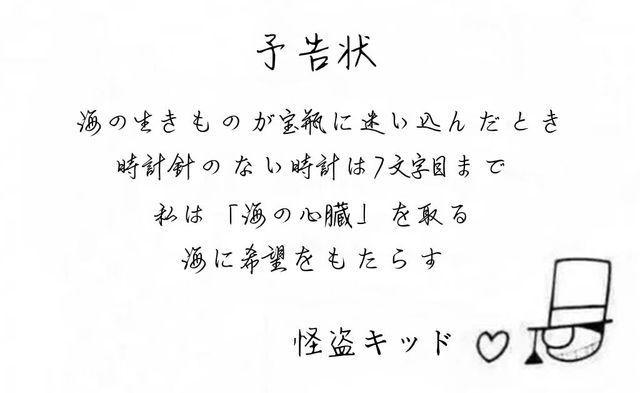 予告状
海の生きものが宝瓶に迷い込んだとき
時計針のない時計は7文字目まで
私は「海の心臓」を取る
海に希望をもたらす
怪盗キッド ♡